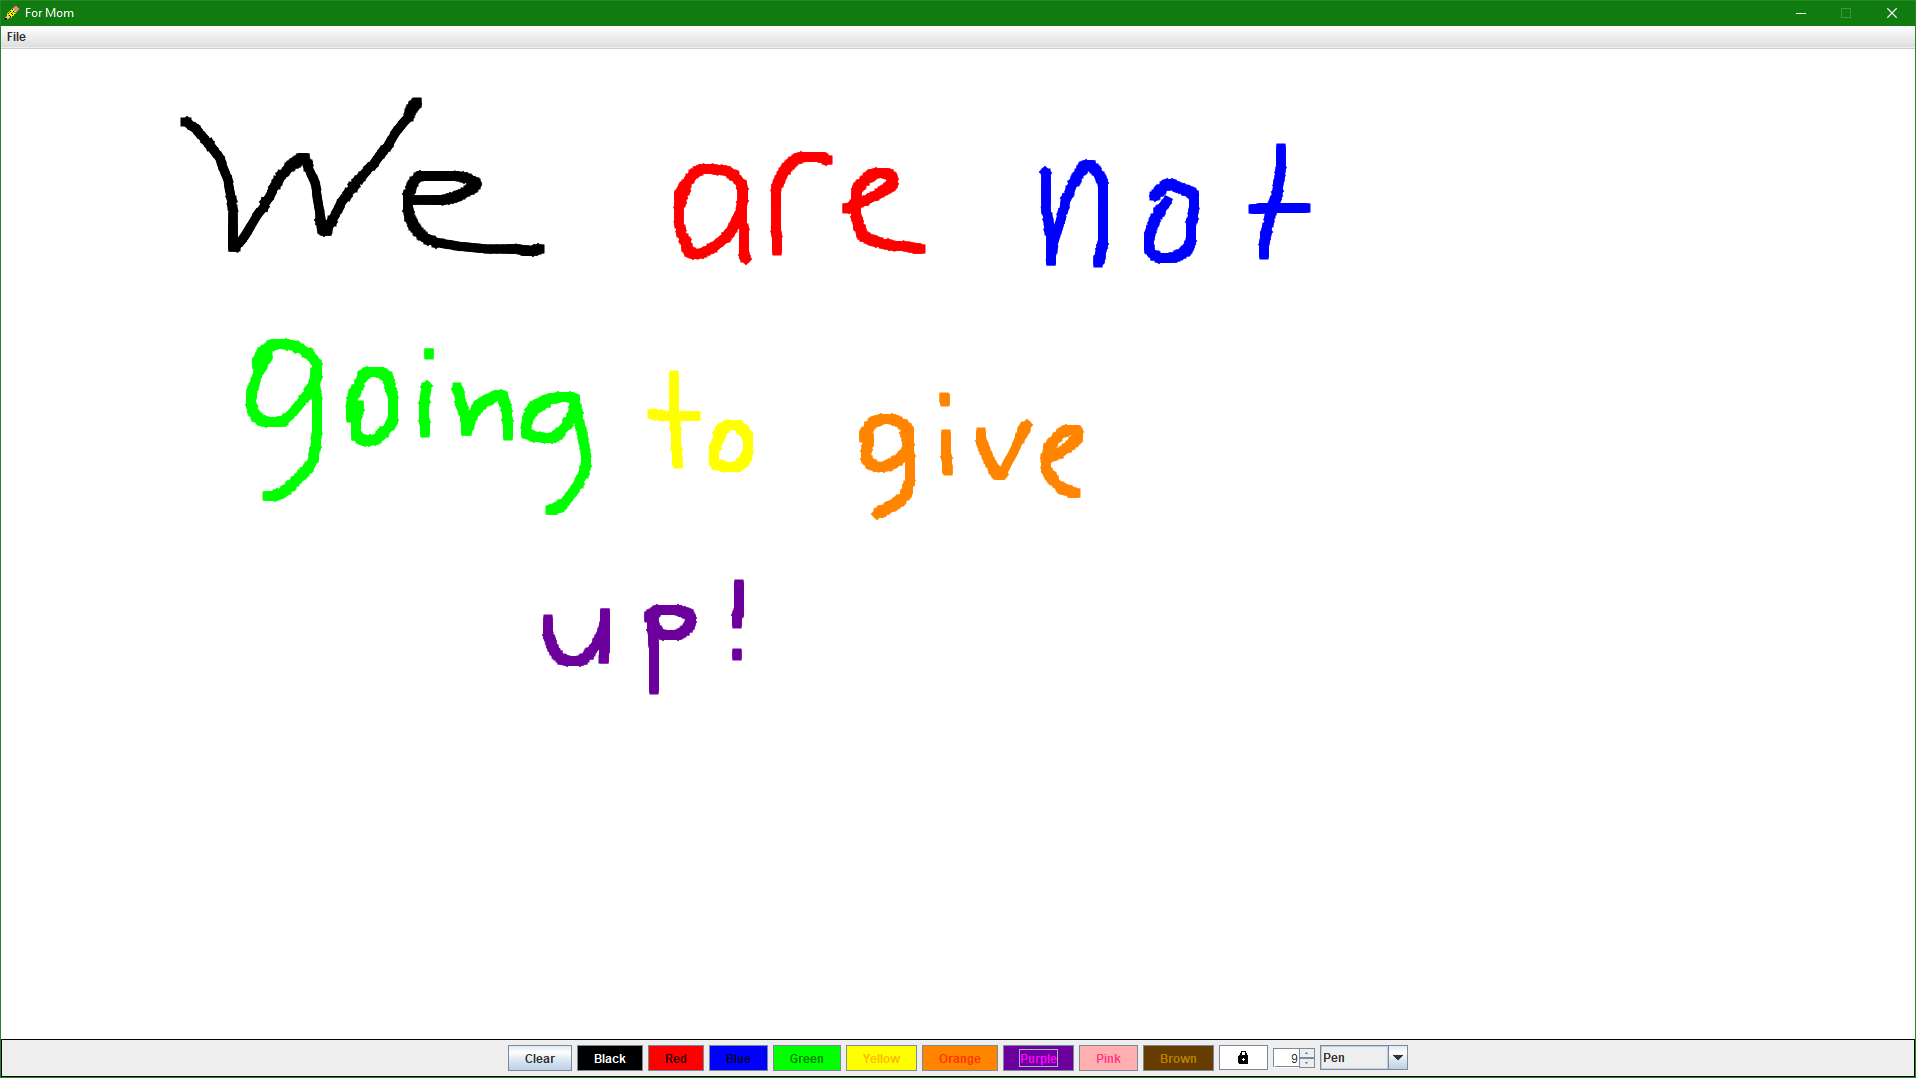 For Mom
File
We are not
going to give
up!
Clear Black Red Blue Green Yellow Orange Purple Pink Brown 9 Pen